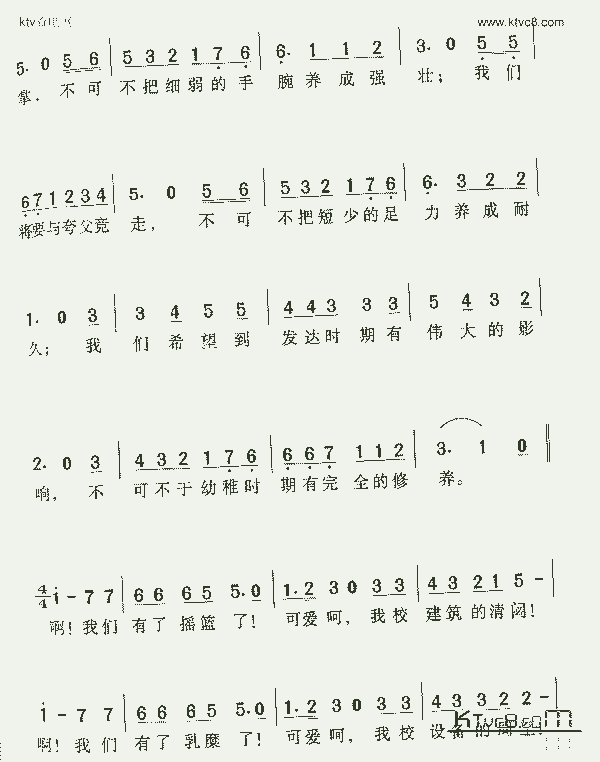 www.ktvc8.com
5. 0 5 6 | 5 3 2 1 7 6 | 6. 1 1 2 | 3. 0 5 5 |
掌。不可 不把细弱的手 腕养成强 壮；我们
6 7 1 2 3 4 | 5. 0 5 6 | 5 3 2 1 7 6 | 6. 3 2 2
将要与夸父竞 走，不可 不把短少的足 力养成耐
1. 0 3 | 3 4 5 5 | 4 4 3 3 3 | 5 4 3 2 |
久；我 们希望到 发达时期有 伟大的影
2. 0 3 | 4 3 2 1 7 6 | 6 6 7 1 1 2 | 3. 1 0 ‖
响，不 可不于幼稚时 期有完全的修 养。
4/4 i - 7 7 | 6 6 6 5 5.0 | 1.2 3 0 3 3 | 4 3 2 1 5 - |
啊！我们 有了摇篮了！ 可爱呵，我校 建筑的清闷！
i - 7 7 | 6 6 6 5 5.0 | 1.2 3 0 3 3 | 4 3 3 2 2 - |
啊！我们 有了乳糜了！ 可爱呵，我校 设备的周全！